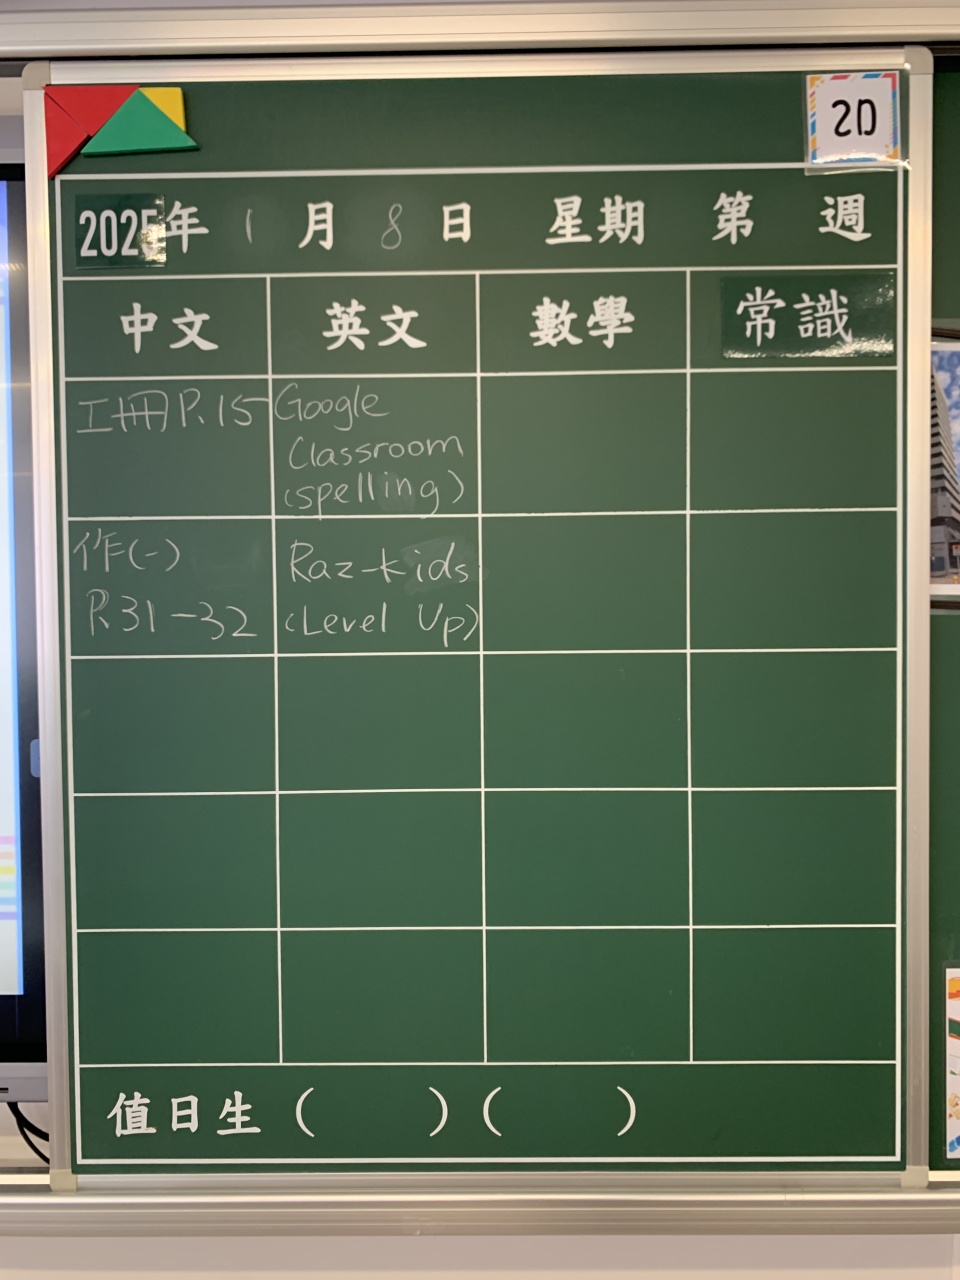 2D
2025年 1 月 8 日 星期 第 週
中文 英文 數學 常識
工冊P.15
Google
Classroom
(spelling)
作(一)
P.31-32
Raz-kids
(Level Up)
值日生 ( ) ( )